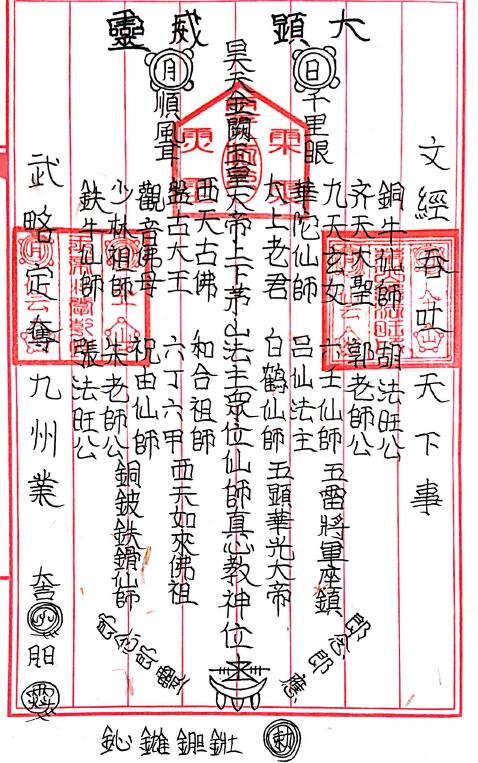 大顯威靈
文經吞吐天下事
銅牛仙師 胡法旺公
齊天大聖 郭老師公
日 千里眼
九天玄女 六壬仙師 五雷將軍座鎮
華陀仙師 呂仙法主
太上老君 白鶴仙師 五顯華光大帝
昊天金闕玉皇大帝上下茅山法主眾位仙師真心教神位
西天古佛 和合祖師
盤古大王 六丁六甲 西天如來佛祖
月 順風耳
觀音佛母 祝由仙師 銅鈸鉄鎖仙師
少林祖師 朱老師公
鉄牛仙師 張法旺公
武略定奪九州業
敕